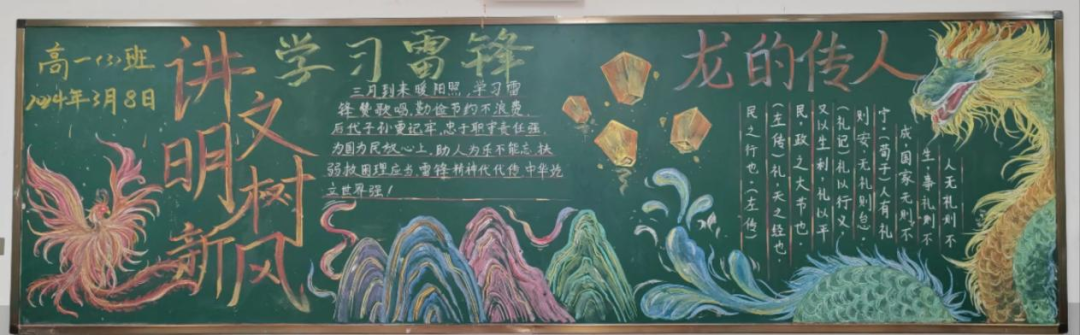 高一(3)班
2024年3月8日
讲文
明树
新风
学习雷锋
三月到来暖阳照,学习雷
锋赞歌唱,勤俭节约不浪费,
后代子孙要记牢,忠于职守责任强,
为国为民放心上,助人为乐不能忘,扶
弱救困理应当,雷锋精神代代传,中华屹
立世界强!
龙的传人
人无礼则不
生,事礼则不
成,国家无则不
宁。(荀子)人有礼
则安,无礼则
(礼记)礼以行义,
又以生利,礼以平
民,政之大节也。
(左传)礼,天之经也,
民之行也。(左传)